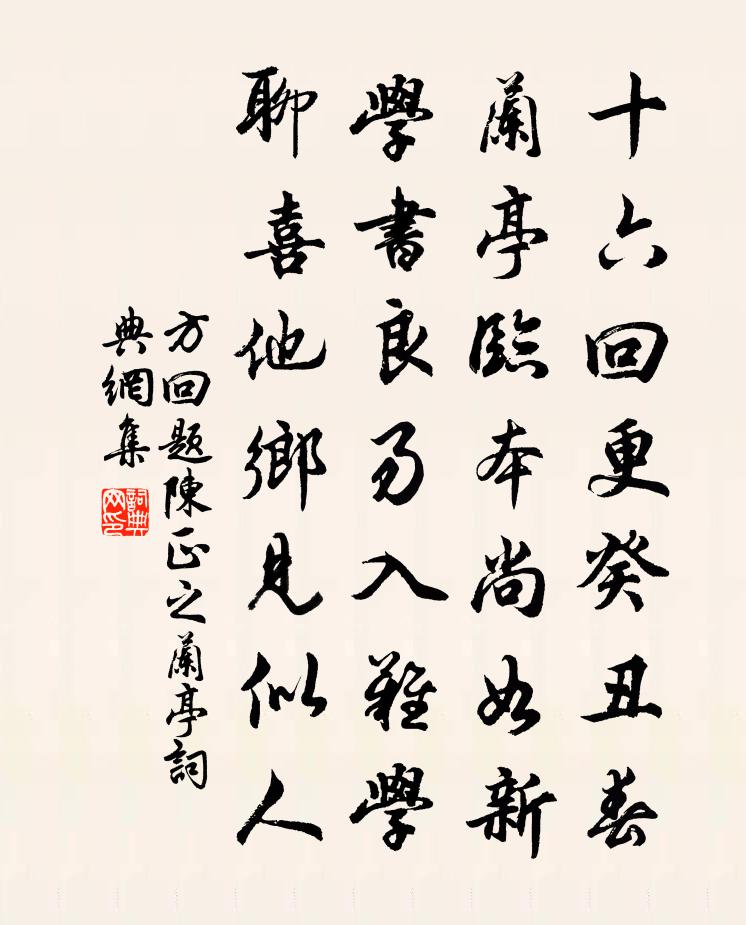 十六回更癸丑春
蘭亭臨本尚如新
學書良易入難學
聊喜他鄉見似人
方回題陳正之蘭亭詞
典網集
詞典网印